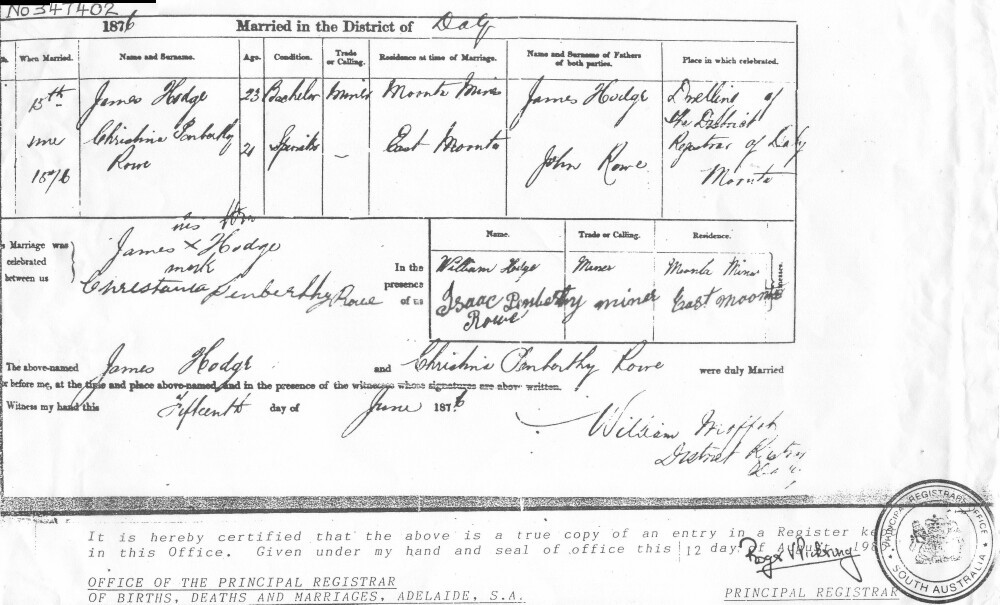 No 347402
1876 Married in the District of Daly
When Married. Name and Surname. Age. Condition. Trade or Calling. Residence at time of Marriage. Name and Surname of Fathers of both parties. Place in which celebrated.
15th James Hodge 23 Bachelor Miner Moonta Mines James Hodge Dwelling of
the District
June Christina Penberthy 21 Spinster – East Moonta John Rowe Registrar of Daly
Rowe
1876 Moonta
his
James x Hodge
mark
Marriage was
celebrated
between us
Christania Penberthy Rowe
In the
presence
of us
Name. Trade or Calling. Residence.
William Hodge Miner Moonta Mines
Isaac Penberthy miner East Moonta
Rowe
The above-named James Hodge and Christina Penberthy Rowe were duly Married
or before me, at the time and place above-named, and in the presence of the witnesses whose signatures are above written.
Witness my hand this Fifteenth day of June 1876
William Moffat
District
It is hereby certified that the above is a true copy of an entry in a Register
in this Office. Given under my hand and seal of office this 12 day of
OFFICE OF THE PRINCIPAL REGISTRAR
OF BIRTHS, DEATHS AND MARRIAGES, ADELAIDE, S.A.
PRINCIPAL REGISTRAR
PRINCIPAL REGISTRARS OFFICE
SOUTH AUSTRALIA